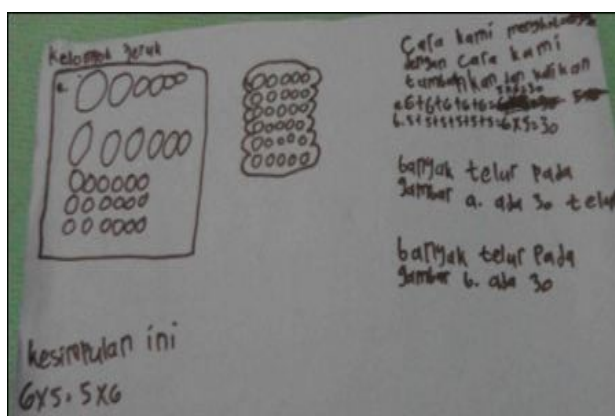 Kelompok Jeruk
a.
Cara kami
dengan cara kami
tambahkan dan kalikan
5x6=30
a. 6+6+6+6+6=
b. 5+5+5+5+5+5=6x5=30
banyak telur pada
gambar a. ada 30 telur
banyak telur pada
gambar b. ada 30
kesimpulan ini
6x5=5x6